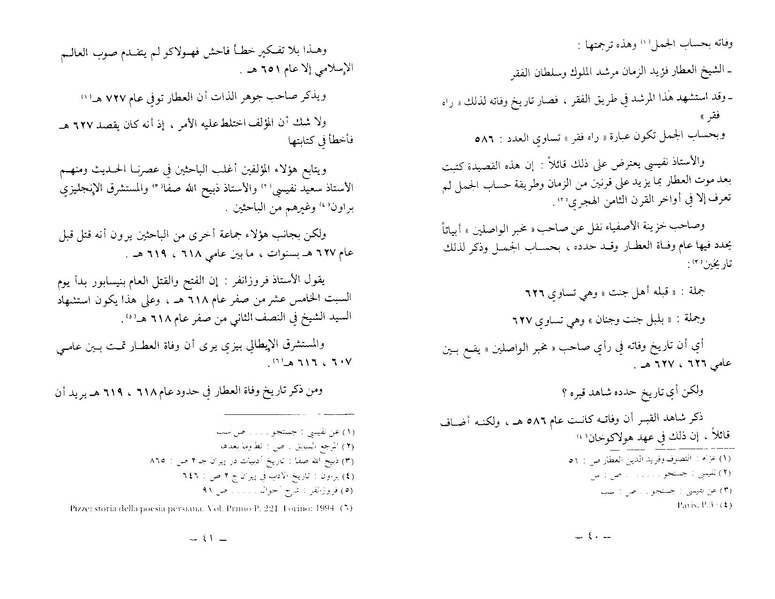 وفاته بحساب الجمل(١) وهذه ترجمتها :
ـ الشيخ العطار فريد الزمان مرشد الملوك وسلطان الفقر
ـ وقد استشهد هذا المرشد في طريق الفقر ، فصار تاريخ وفاته لذلك « راه
فقر »
وبحساب الجمل تكون عبارة « راه فقر » تساوي العدد : ٥٨٦
والأستاذ نفيسي يعترض على ذلك قائلاً : إن هذه القصيدة كتبت
بعد موت العطار بما يزيد على قرنين من الزمان وطريقة حساب الجمل لم
تعرف إلا في أواخر القرن الثامن الهجري(٢) .
وصاحب خزينة الأصفياء نقل عن صاحب « مخبر الواصلين » أبياتاً
يحدد فيها عام وفاة العطار وقد حدده ، بحساب الجمل وذكر لذلك
تاريخين(٣) :
جملة : « قبله أهل جنت » وهي تساوي ٦٢٦
وجملة : « بلبل جنت وجنان » وهي تساوي ٦٢٧
أي أن تاريخ وفاته في رأي صاحب « مخبر الواصلين » يقع بين
عامي ٦٢٦ ، ٦٢٧ هـ .
ولكن أي تاريخ حدده شاهد قبره ؟
ذكر شاهد القبر أن وفاته كانت عام ٥٨٦ هـ ، ولكنه أضاف
قائلاً ، إن ذلك في عهد هولاكوخان(٤)
(١) عزام : التصوف وفريد الدين العطار ص : ٥٦
(٢) نفيسي : جستجو . . . . . . ص : س
(٣) عن نفيسي : جستجو . . ص : سب
(٤) Paris. P.3
ـ ٤٠ ـ
وهذا بلا تفكير خطأ فاحش فهولاكو لم يتقدم صوب العالم
الإسلامي إلا عام ٦٥١ هـ .
ويذكر صاحب جوهر الذات أن العطار توفي عام ٧٢٧ هـ(١)
ولا شك أن المؤلف اختلط عليه الأمر ، إذ أنه كان يقصد ٦٢٧ هـ
فأخطأ في كتابتها
ويتابع هؤلاء المؤلفين أغلب الباحثين في عصرنا الحديث ومنهم
الأستاذ سعيد نفيسي(٢) والأستاذ ذبيح الله صفا(٣) والمستشرق الإنجليزي
براون(٤) وغيرهم من الباحثين .
ولكن بجانب هؤلاء جماعة أخرى من الباحثين يرون أنه قتل قبل
عام ٦٢٧ هـ بسنوات ، ما بين عامي ٦١٨ ، ٦١٩ هـ .
يقول الأستاذ فروزانفر : إن الفتح والقتل العام بنيسابور بدأ يوم
السبت الخامس عشر من صفر عام ٦١٨ هـ ، وعلى هذا يكون استشهاد
السيد الشيخ في النصف الثاني من صفر عام ٦١٨ هـ(٥) .
والمستشرق الإيطالي بيزي يرى أن وفاة العطار تمت بين عامي
٦٠٧ ، ٦١٦ هـ(٦) .
ومن ذكر تاريخ وفاة العطار في حدود عام ٦١٨ ، ٦١٩ هـ يريد أن
(١) عن نفيسي : جستجو . . . . ص سب
(٢) المرجع السابق . ص :
(٣) ذبيح الله صفا : تاريخ أدبيات در إيران جـ ٢ ص : ٨٦٥
(٤) براون : تاريخ الأدب في إيران ج ٢ ص : ٦٤٦
(٥) فروزانفر : شرح أحوال . . . . . ص ٩١
(٦) Pizze: storia della poesia persiana. Vol. Primo P. 221 Torino: 1994
ـ ٤١ ـ